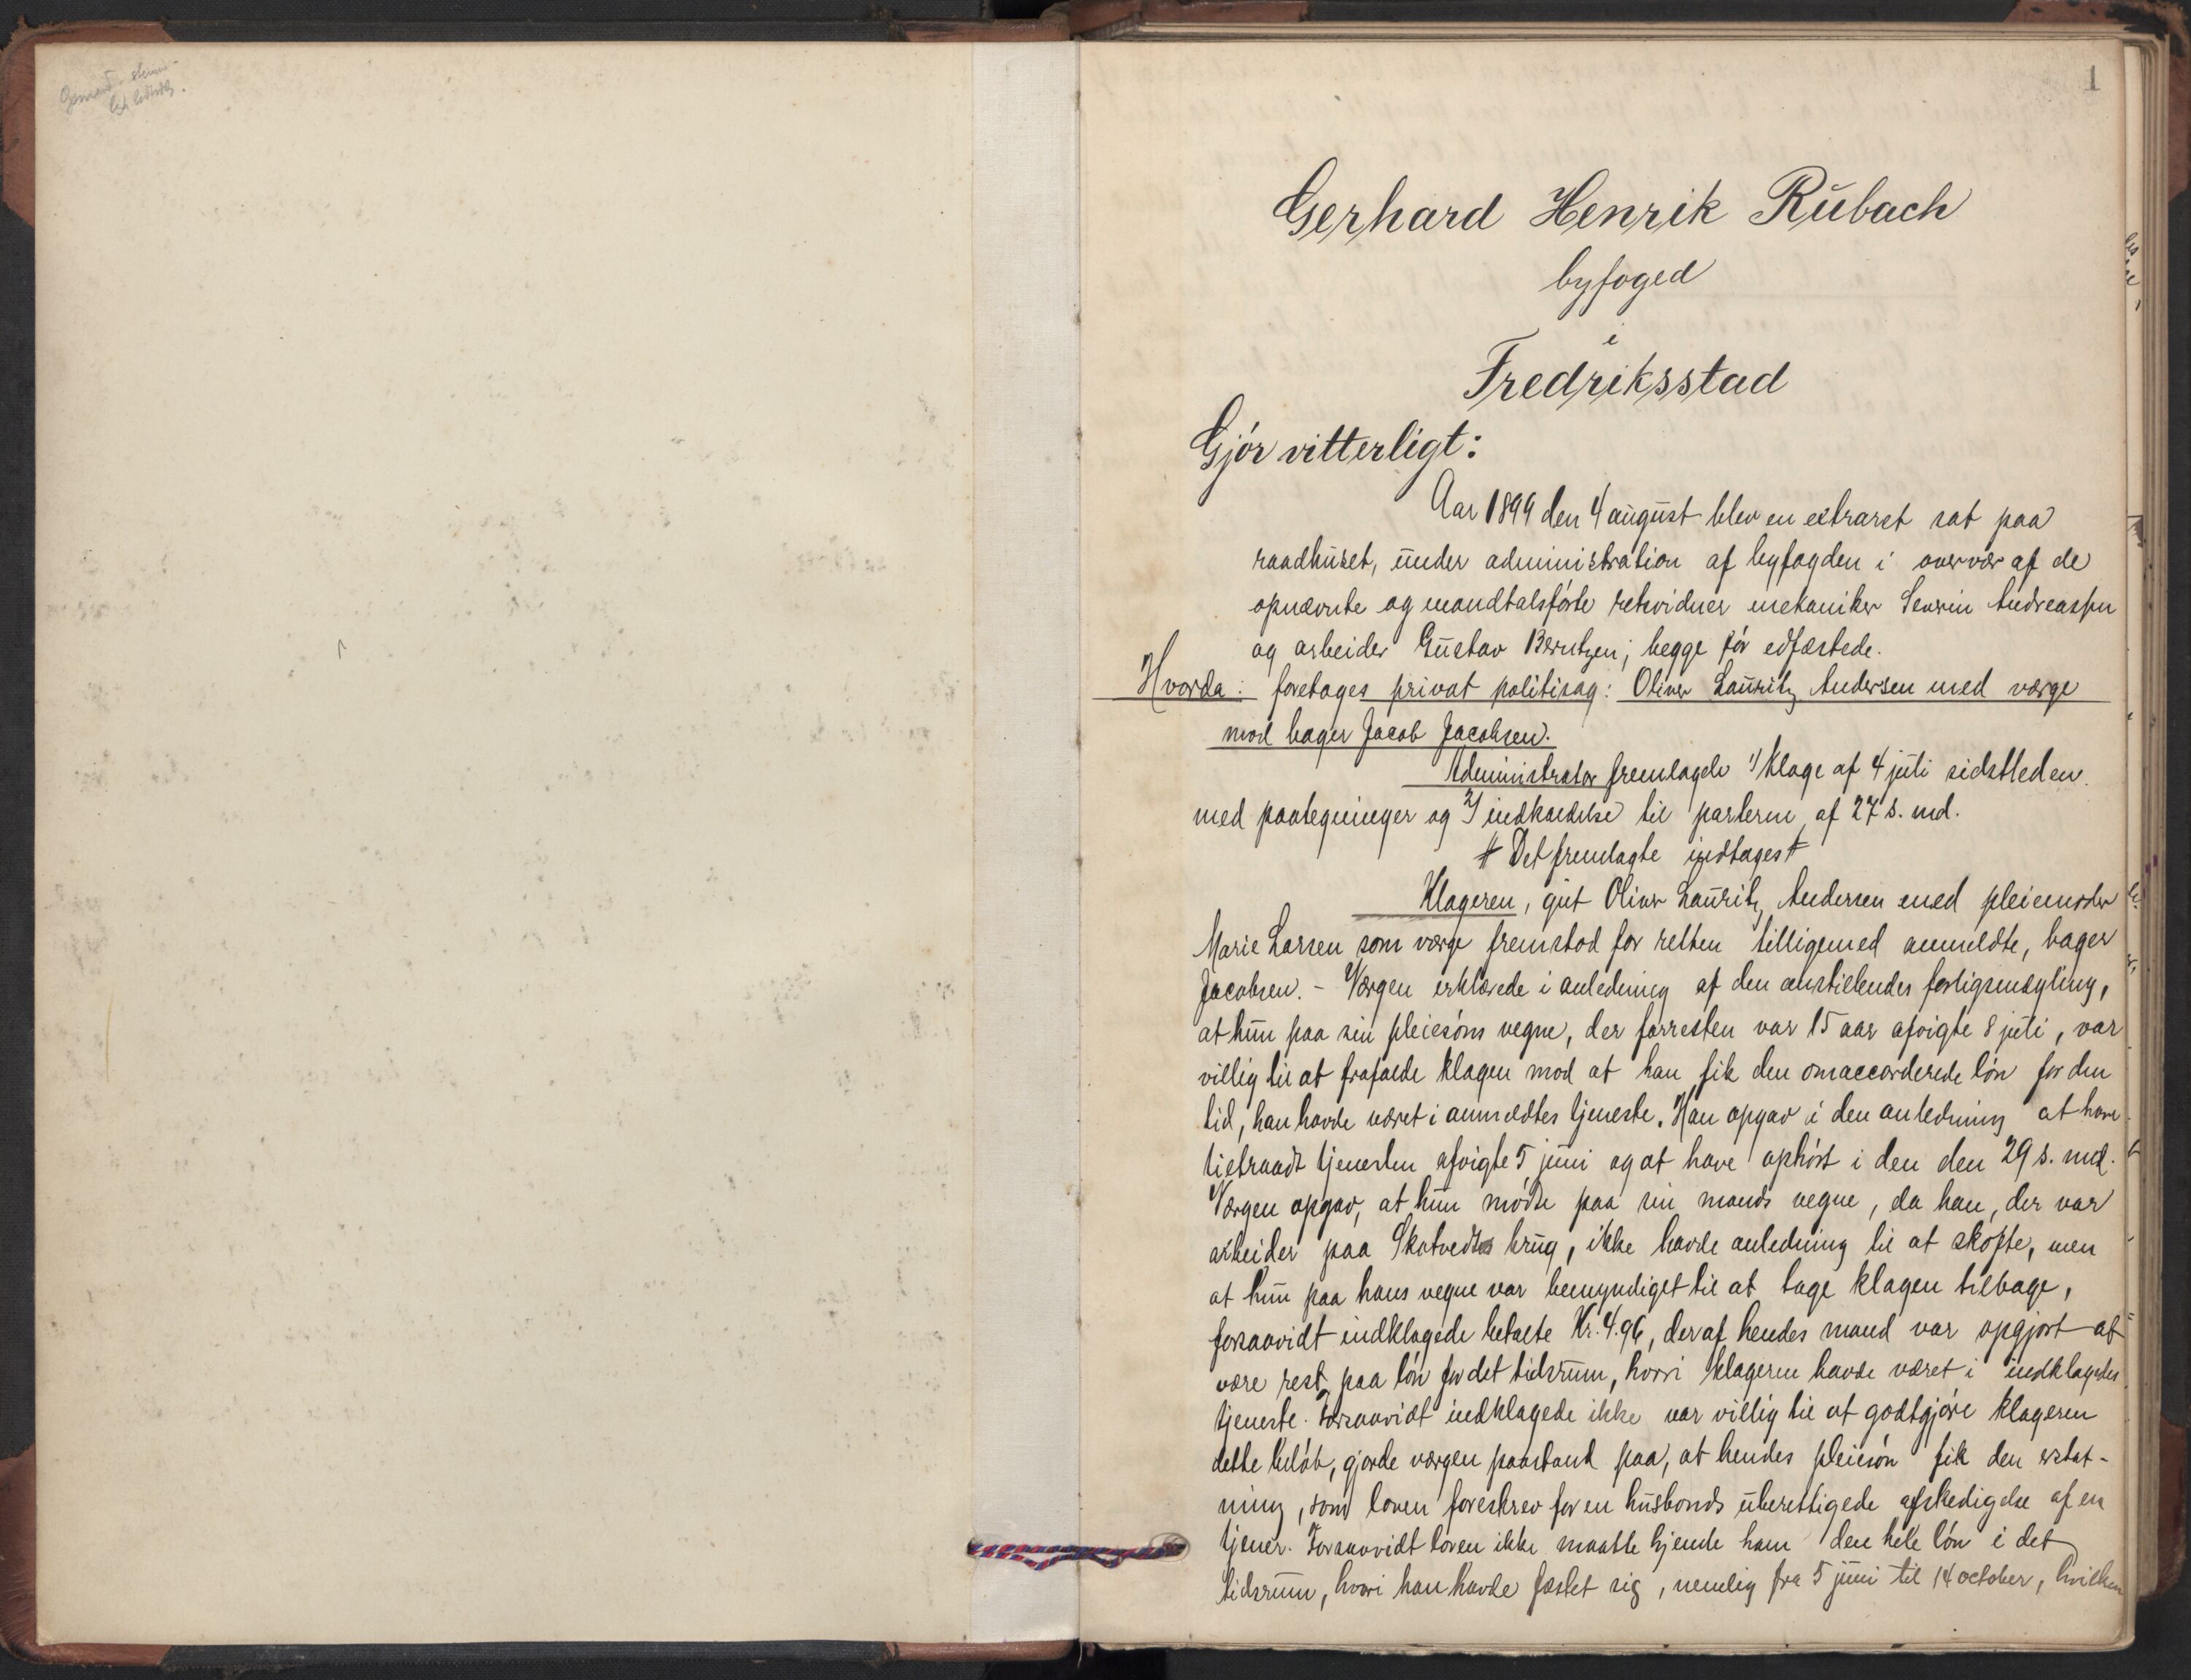 1
Gerhard Henrik Rubach
byfoged
i
Fredriksstad
Gjør vitterligt:
Aar 1899 den 4 august blev en extraret sat paa
raadhuset, under administration af byfogden i overvær af de
opnævnte og mandtalsførte retsvidner mekaniker Severin Andreassen
og arbeider Gustav Berntzen; begge før edfæstede.
Hvorda: foretages privat politisag: Oliver Lauritz Andersen med værge
mod bager Jacob Jacobsen.
Administrator fremlagde 1/ Klage af 4 juli sidstleden
med paategninger og 2/ indkaldelse til parterne af 27 s. md.
# Det fremlagte indtages #
Klageren, gut Oliver Lauritz Andersen med pleiemoder
Marie Larsen som værge fremstod for retten tilligemed anmeldte, bager
Jacobsen. – Værgen erklærede i anledning af den anstillendes forligsmægling,
at hun paa sin pleiesøns vegne, der forresten var 15 aar afvigte 8 juli, var
villig til at frafalde klagen mod at han fik den omaccorderede løn for den
tid, han havde været i anmeldtes tjeneste. Han opgav i den anledning at have
tiltraadt tjenesten afvigte 5 juni og at have ophørt i den den 29 s. md.
Værgen opgav, at hun mødte paa sin mands vegne, da han, der var
arbeider paa Skatvedts brug, ikke havde anledning til at skofte, men
at hun paa hans vegne var bemyndiget til at tage klagen tilbage,
forsaavidt indklagede betalte Kr. 4.96, der af hendes mand var opgjort at
være rest paa løn for det tidsrum, hvori klageren havde været i indklagedes
tjeneste. Forsaavidt indklagede ikke var villig til at godtgjøre klageren
dette beløb, gjorde værgen paastand paa, at hendes pleiesøn fik den erstat-
ning, som loven foreskrev for en husbonds uberettigede afskedigelse af en
tjener. Forsaavidt loven ikke maatte kjende ham den hele løn i det
tidsrum, hvori han havde fæstet sig, nemlig fra 5 juni til 14 october, hvilken